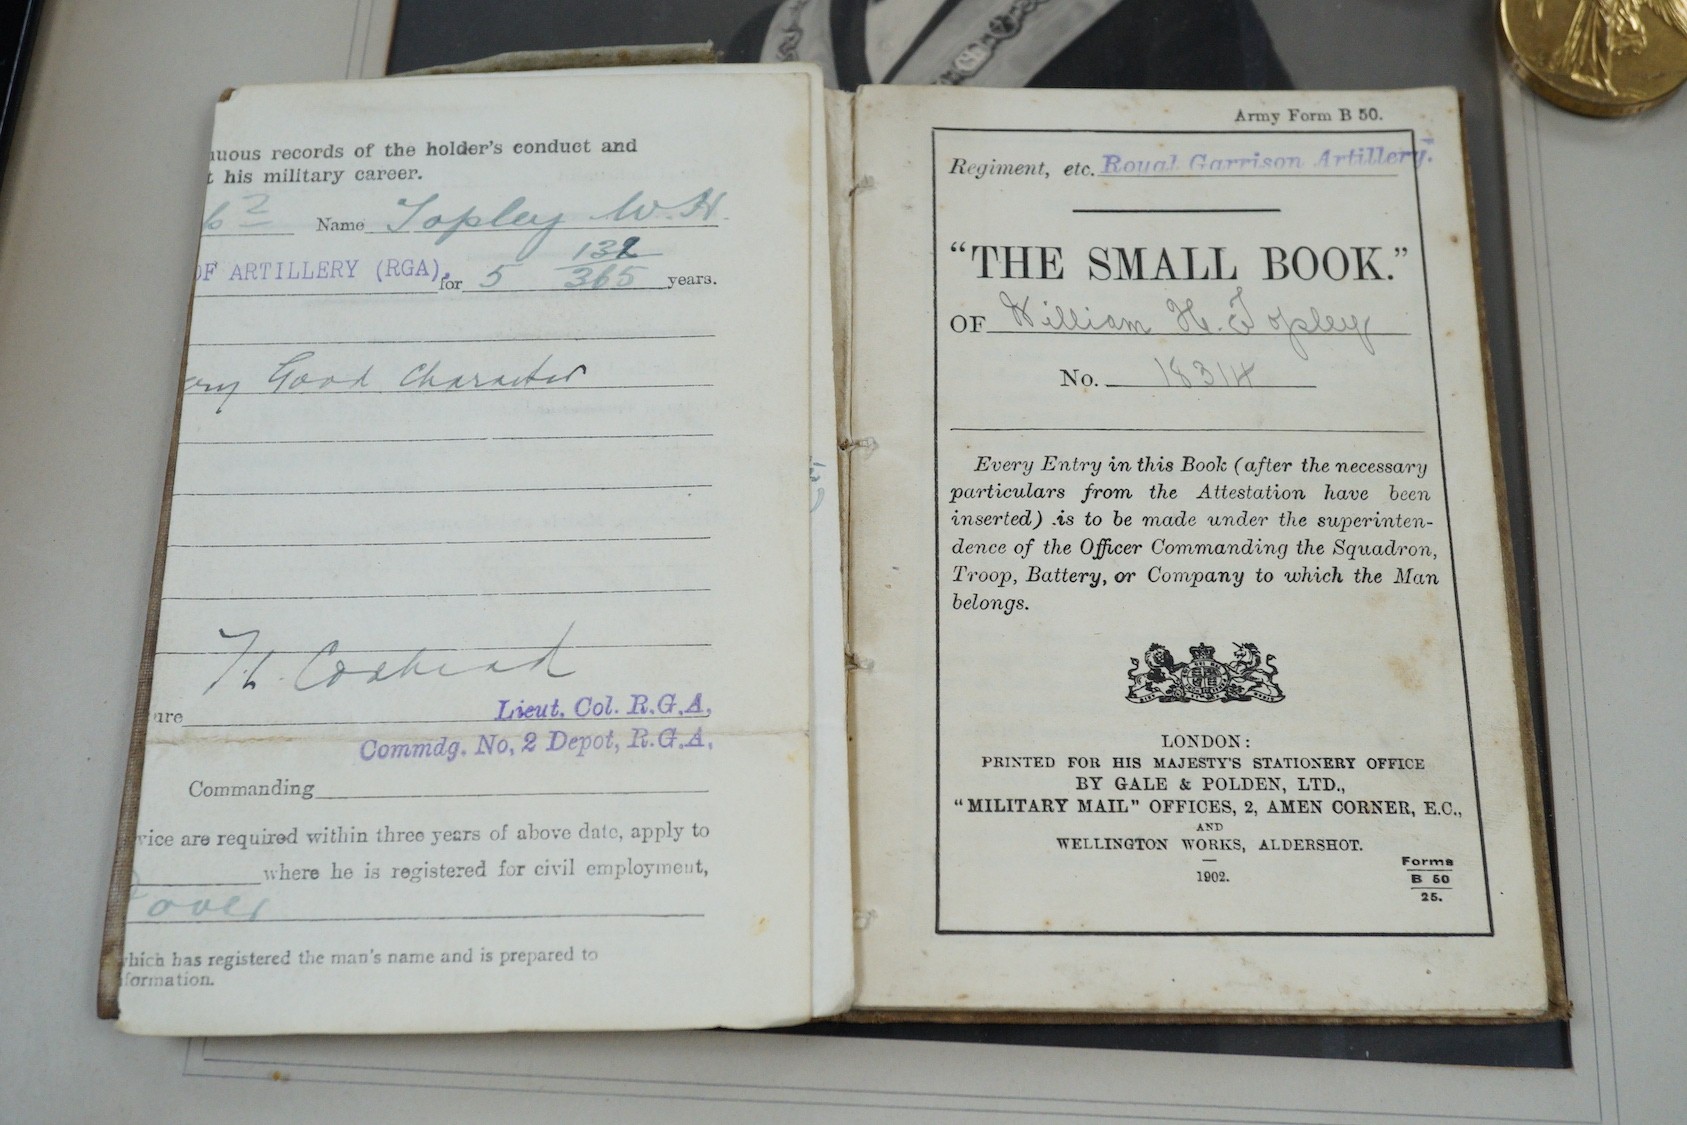 uous records of the holder's conduct and
t his military career.
Name Topley W. H.
OF ARTILLERY (RGA), for 5 132/365 years.
ery Good Character
H. Coxhead
ure
Lieut. Col. R.G.A,
Commdg. No, 2 Depot, R.G.A,
Commanding
vice are required within three years of above date, apply to
where he is registered for civil employment,
Dover
which has registered the man's name and is prepared to
formation.
Army Form B 50.
Regiment, etc. Royal Garrison Artillery.
"THE SMALL BOOK."
OF William H. Topley
No. 18314
Every Entry in this Book (after the necessary
particulars from the Attestation have been
inserted) is to be made under the superinten-
dence of the Officer Commanding the Squadron,
Troop, Battery, or Company to which the Man
belongs.
LONDON:
PRINTED FOR HIS MAJESTY'S STATIONERY OFFICE
BY GALE & POLDEN, LTD.,
"MILITARY MAIL" OFFICES, 2, AMEN CORNER, E.C.,
AND
WELLINGTON WORKS, ALDERSHOT.
1902.
Forms
B 50
25.